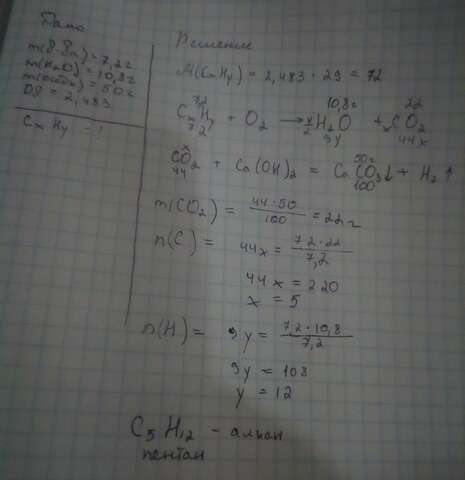 Дано
m(в-ва)=7,2г
m(H₂O)=10,8г
m(осадк)=50г
D8=2,483
CxHy - ?
Решение
M(CxHy) = 2,483 · 29 = 72
72 10,8г 22
CxHy + O₂ → y/2 H₂O + xCO₂
72 9y 44x
x 50г
CO₂ + Ca(OH)₂ = CaCO₃↓ + H₂↑
44 100
m(CO₂) = 44·50/100 = 22г
n(C) = 44x = 72·22/7,2
44x = 220
x = 5
n(H) = 9y = 72·10,8/7,2
9y = 108
y = 12
C₅H₁₂ - алкан
пентан